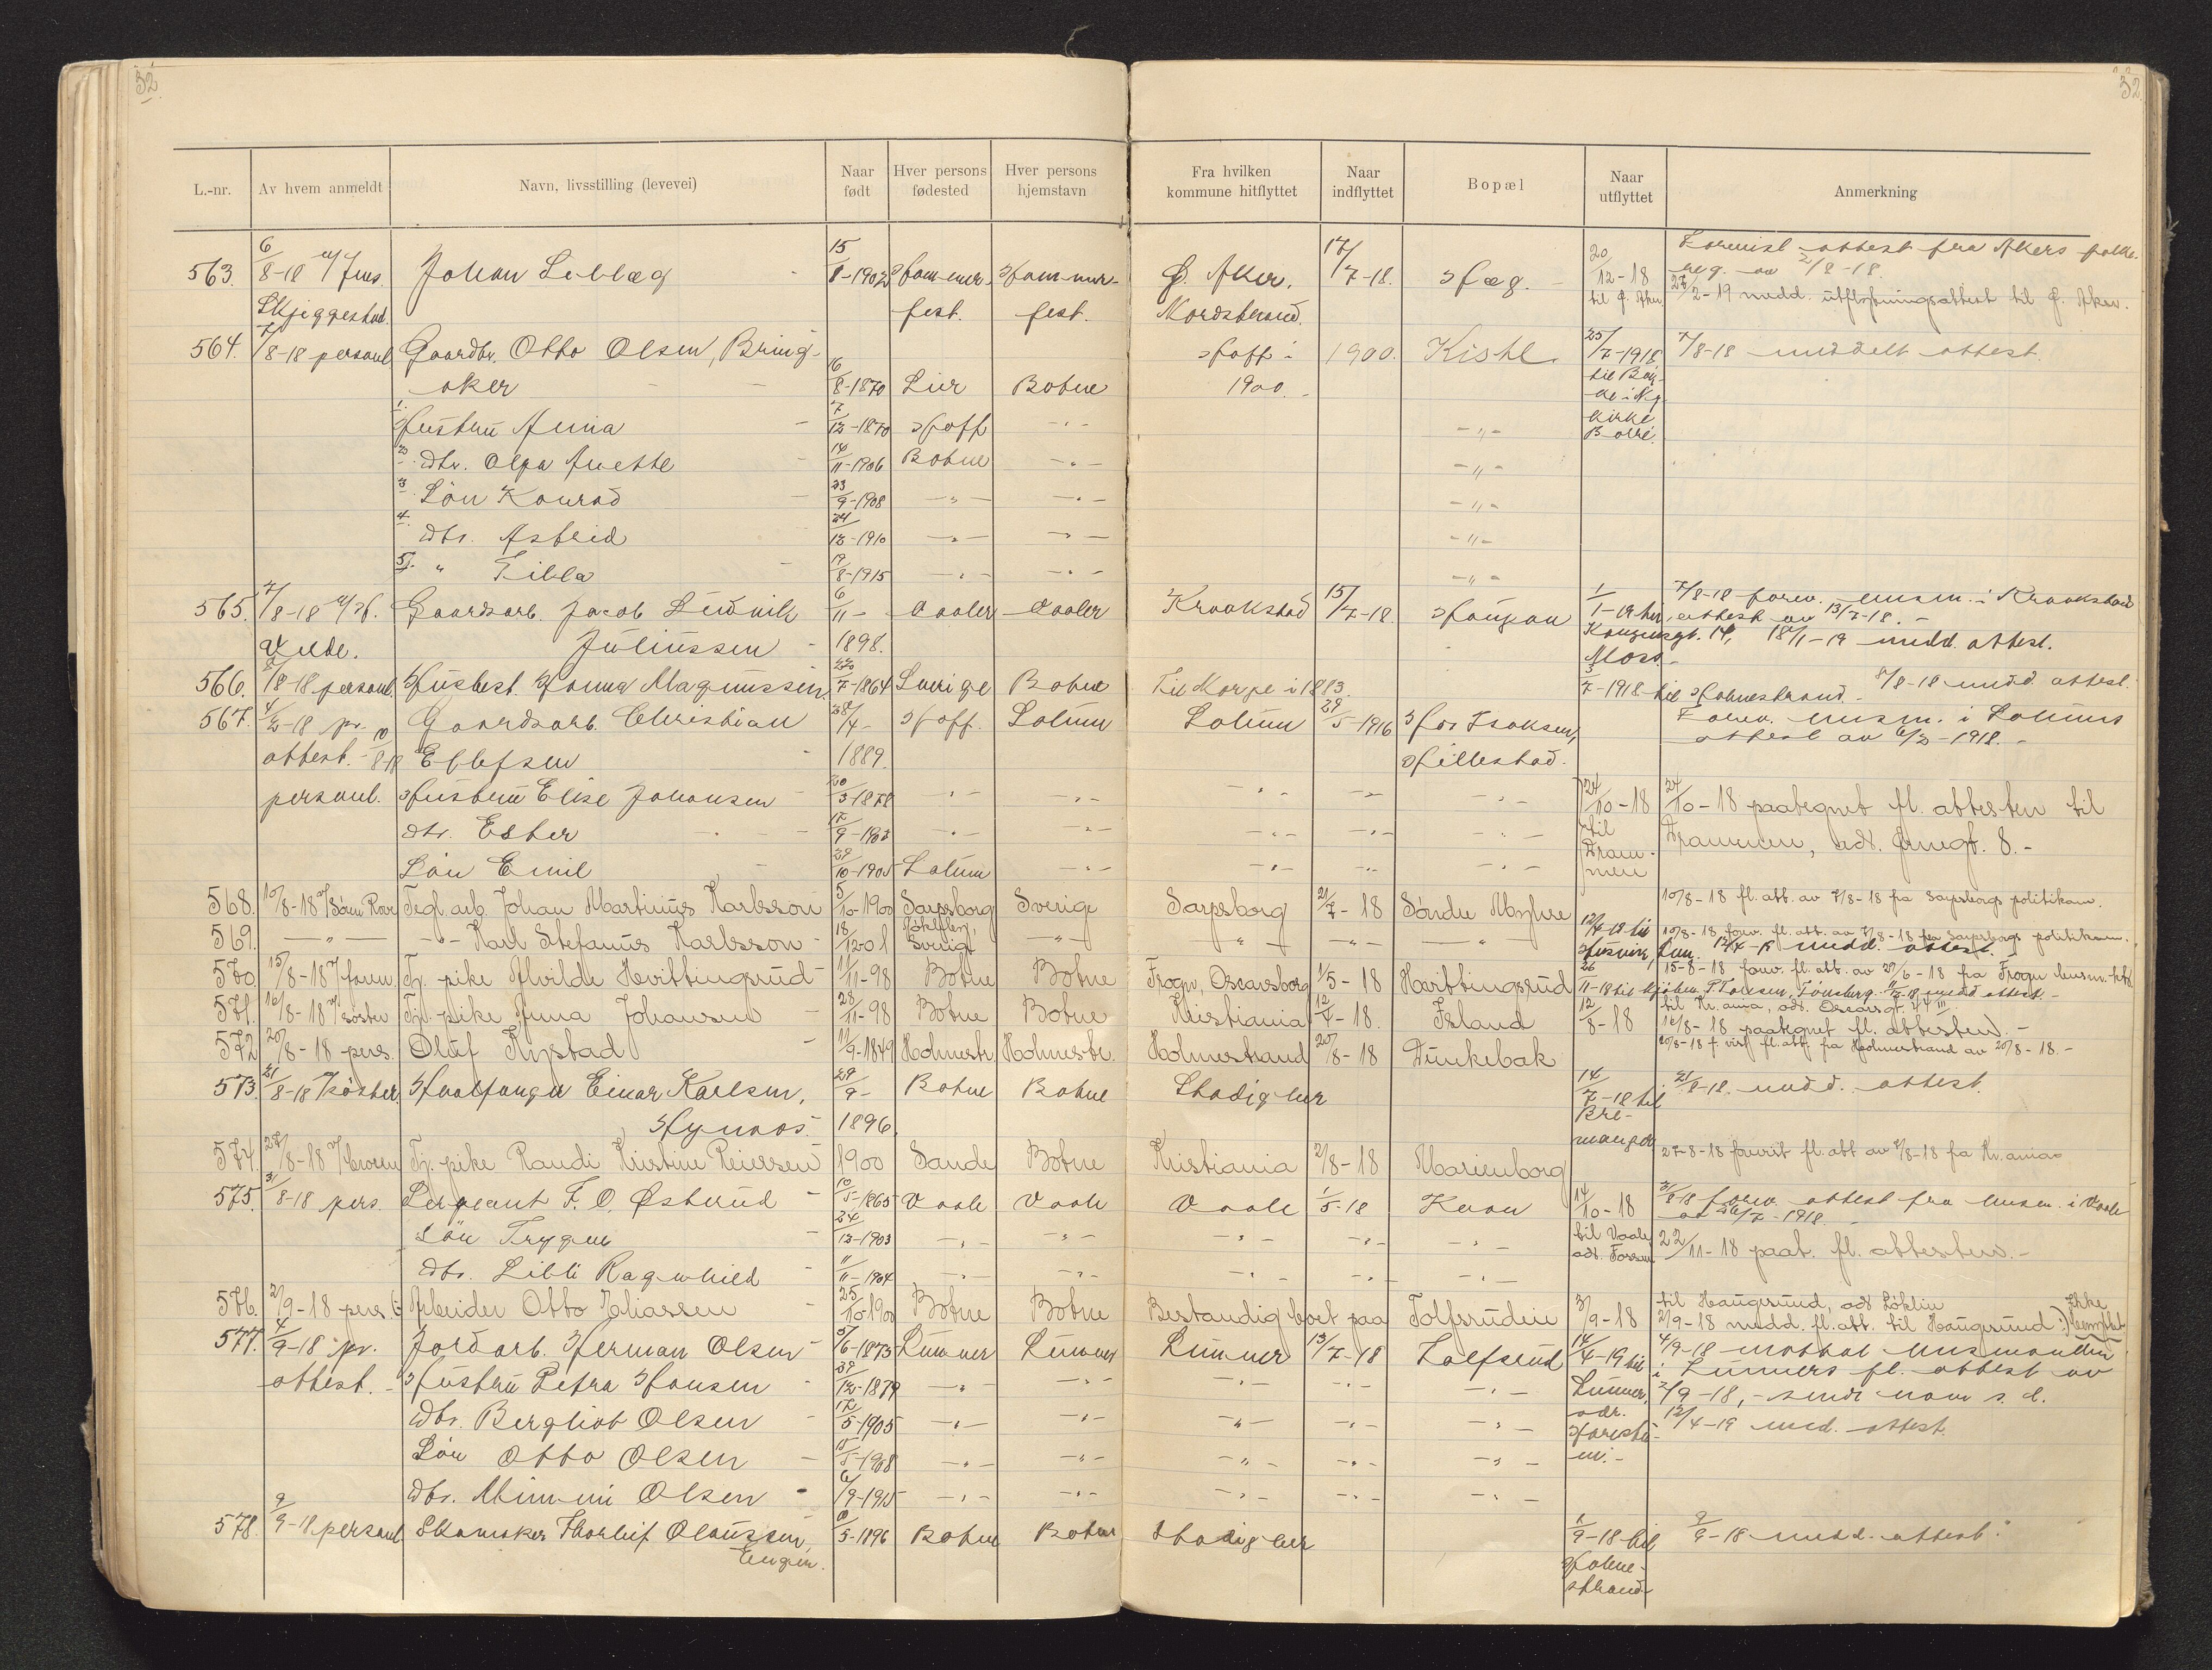 32.
32.
L.-nr. | Av hvem anmeldt | Navn, livsstilling (levevei) | Naar født | Hver persons fødested | Hver persons hjemstavn | Fra hvilken kommune hitflyttet | Naar indflyttet | Bopæl | Naar utflyttet | Anmerkning
563. | 6/8-18 | Johan | 15/8-1902 | Hammer- | Hammer- | Ø. Aker, | 17/7-18. | Hæg. | 20/12-18 | attest fra Akers folke-
Skjeggestad. | fest. | fest. | Nordstrand. | til Ø. Aker | reg. av 2/8-18.
2-19 medd. utflytningsattest til Ø. Aker.
564. | 7/8-18 personl. | Gaardbr. Otto Olsen, Bring- | Hoff i | 1900. | 25/7-1918 | 7/8-18 meddelt attest.
aker | 6/8-1870 | Lier | Botne | 1900.
kirke
Borre.
1. Hustru Anna | 7/12-1870 | Hoff | -"- | -"-
2. dtr. Olga Anette | 14/11-1906 | Botne | -"- | -"-
3. Søn Konrad | 23/9-1908 | -"- | -"- | -"-
4. dtr. Astrid | 24/12-1910 | -"- | -"- | -"-
5. " | 19/8-1915 | -"- | -"- | -"-
565. | 7/8-18 | Gaardsarb. Jacob Ludvik | 6/11- | Vaaler | Vaaler | Kraakstad | 15/7-18. | Haugan | 1/1-19 | 7/8-18 forev. lensm. i Kraakstad
Juliussen | 1898. | Kongensgt. 14, | attest av 13/7-18.
Moss | 18/1-19 medd. attest.
566. | 8/8-18 personl. | Husbest. Hanna Magnussen. | 7-1864 | Sverige | Botne | Til Norge i 1883. | 7-1918 til Holmestrand. | 8/8-18 medd. attest.
567. | pr. | Gaardsarb. Christian | 28/4- | Hoff. | Solum | Solum | 29/5-1916 | Isaksen, | Forev. lensm. i Solums
attest. | Ellefsen | 1889. | Hillestad. | attest av 6/2-1918.
personl. | Hustru Elise Johansen | 20/3-1878 | -"- | -"- | -"- | -"- | -"- | 24/10-18 | 24/10-18 paategnet fl. attesten til
dtr. Ester | -"- | -"- | -"- | -"- | -"- | til | Drammen, adr. 8.-
Søn Emil | 29/10-1905 | Solum | -"- | -"- | -"- | -"- | Dram-
men
568. | 10/8-18 | Tegl. arb. Johan Martinus Karlsson | 5/10-1900 | Sarpsborg | Sverige | Sarpsborg | 21/7-18 | Søndre Myhre | 10/8-18 fl. att. av 7/8-18 fra Sarpsborgs politikam.
569. | -"- | -"- Karl Stefanus Karlsson | Sverige | -"- | -"- | -"- | -"- | 10/8-18 forev. fl. att. av 7/8-18 fra Sarpsborgs politikam.
medd. attest.
570. | 15/8-18 | Tj. pike Alvilde Hvittingsrud | 11/11-98 | Botne | Botne | Frogn, Oscarsborg | 1/5-18 | Hvittingsrud | 26/11-18 til | 15-8-18 forev. fl. att. av 29/6-18 fra Frogn lensm.
Tønsberg. medd attest.
571. | 16/8-18 | Tj. pike Anna Johansen | 28/11-98 | Botne | Botne | Kristiania | 12/7-18. | Island | 12/8-18 | til Kr.ania, adr. Oscarsgt. 44 III
16/8-18 paategnet fl. attesten.
572 | 20/8-18 pers. | Oluf | 11/9-1849 | Holmestr. | Holmestr. | Holmestrand | 20/8-18 | Dunkebak | 20/8-18 fra Holmestrand av 20/8-18.
573. | 21/8-18 | Hvalfanger Einar Karlsen, | 29/9- | Botne | Botne | Stadig her | 14/7-18 til | 21/8-18. medd. attest.
Hynaas. | 1896. | Bre-
manger
574. | 27/8-18 | Tj. pike Randi Kristine Reiersen | 1900 | Sande | Botne | Kristiania | 2/8-18 | Marienborg | 27-8-18 forevist fl. att av 2/8-18 fra Kr.ania
575. | 31/8-18 pers. | Sergeant F. O. Østerud | 10/5-1865 | Vaale | Vaale | Vaale | 1/5-18 | 14/10-18 | 31/8-18 forev. attest fra lensm. i Vaale
av 26/7-1918.
Søn Trygve | 24/12-1903 | -"- | -"- | -"- | -"- | -"- | til Vaale | 22/11-18 paat. fl. attesten.
dtr. Lilli Ragnhild | 11/11-1904 | -"- | -"- | -"- | -"- | -"-
576. | 2/9-18 pers. | Arbeider Otto Eliassen | 25/10-1900 | Botne | Botne | Bestandig boet paa | Tolfsrudeie | 3/9-18 | til Haugesund, adr
2/9-18 medd. fl. att. til Haugesund. Ikke
577. | 4/9-18 pr. | Jordarb. Herman Olsen | 5/6-1873 | Lunner | Lunner | Lunner | 13/7-18 | Tolfsrud | 14/4-19 til | 4/9-18 mottat lensmanden
attest. | Hustru Petra Hansen | 12-1879 | -"- | -"- | -"- | -"- | -"- | Lunner, | i Lunners fl. attest av
2/9-18,
dtr. Bergliot Olsen | 17/5-1905 | -"- | -"- | -"- | -"- | -"- | adr. | 12/4-19 med. attest.
Søn Otto Olsen | 15/5-1908 | -"- | -"- | -"- | -"- | -"-
dtr. Mimmi Olsen | 6/9-1915 | -"- | -"- | -"- | -"- | -"-
578. | 9/9-18. personl. | Skomaker Thorleif Olaussen, | 5-1896 | Botne | Botne | Stadig her | 1/9-18 til | 9/9-18 medd. attest.
Engen. | Holme-
strand